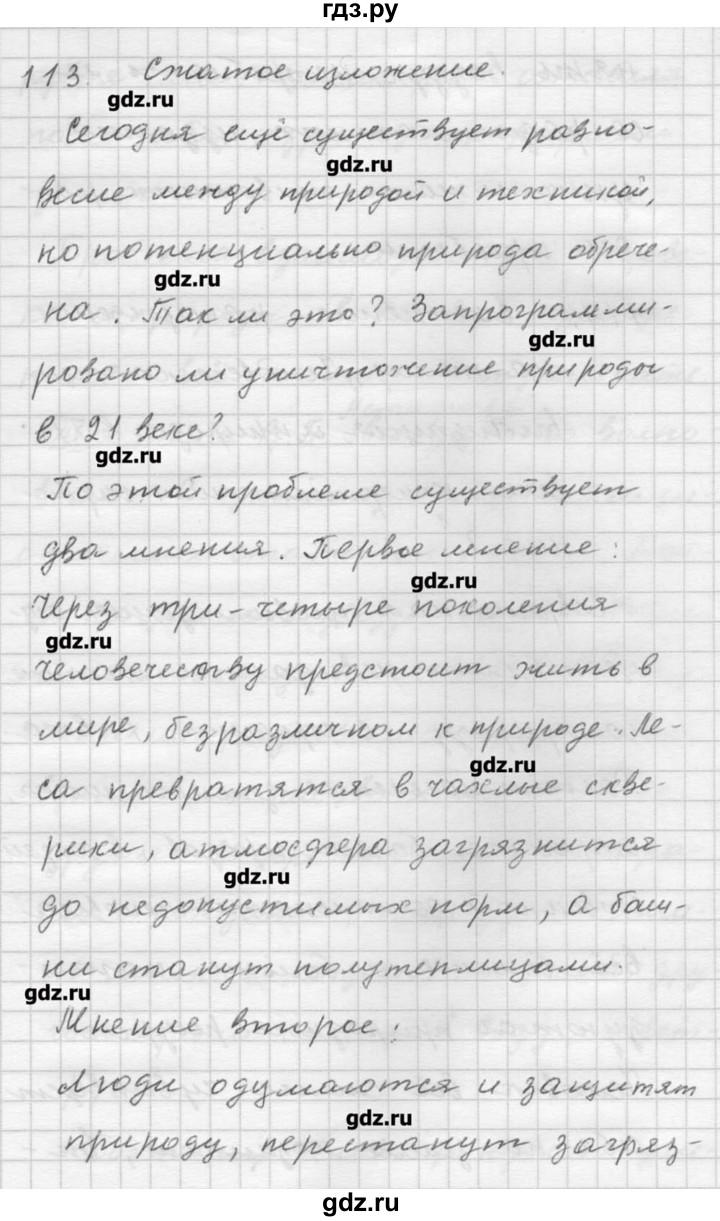 гдз.ру
113. Сжатое изложение.
gdz.ru
Сегодня ещё существует равно-
gdz.ru
весие между природой и техникой,
но потенциально природа обрече-
gdz.ru
на. Так ли это? Запрограмми-
gdz.ru
ровано ли уничтожение природы
в 21 веке?
gdz.ru
По этой проблеме существует
два мнения. Первое мнение:
gdz.ru
Через три-четыре поколения
gdz.ru
человечеству предстоит жить в
мире, безразличном к природе. Ле-
gdz.ru
са превратятся в чахлые скве-
рики, атмосфера загрязнится
gdz.ru
до недопустимых норм, а баш-
ни станут полутеплицами.
gdz.ru
Мнение второе:
Люди одумаются и защитят
gdz.ru
природу, перестанут загряз-
gdz.ru